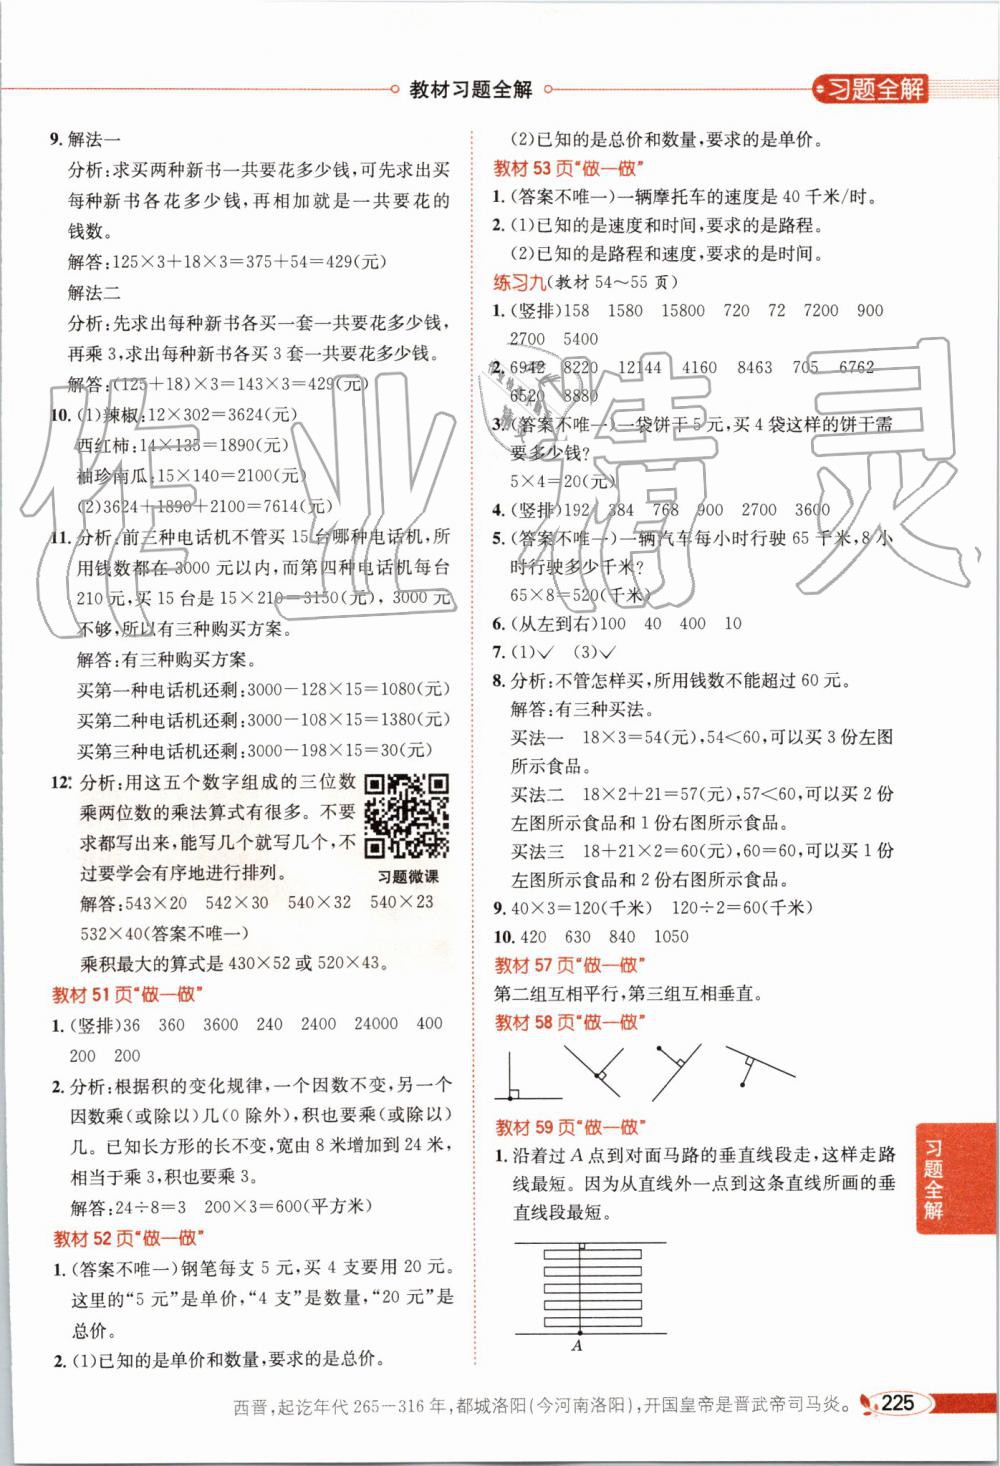 教材习题全解
习题全解
9. 解法一
分析:求买两种新书一共要花多少钱,可先求出买
每种新书各花多少钱,再相加就是一共要花的
钱数。
解答:125×3+18×3=375+54=429(元)
解法二
分析:先求出每种新书各买一套一共要花多少钱,
再乘 3,求出每种新书各买 3 套一共要花多少钱。
解答:(125+18)×3=143×3=429(元)
10. (1)辣椒:12×302=3624(元)
西红柿:14×135=1890(元)
袖珍南瓜:15×140=2100(元)
(2)3624+1890+2100=7614(元)
11. 分析:前三种电话机不管买 15 台哪种电话机,所
用钱数都在 3000 元以内,而第四种电话机每台
210 元,买 15 台是 15×210=3150(元), 3000 元
不够,所以有三种购买方案。
解答:有三种购买方案。
买第一种电话机还剩:3000-128×15=1080(元)
买第二种电话机还剩:3000-108×15=1380(元)
买第三种电话机还剩:3000-198×15=30(元)
12* 分析:用这五个数字组成的三位数
乘两位数的乘法算式有很多。不要
求都写出来,能写几个就写几个,不
过要学会有序地进行排列。
习题微课
解答:543×20 542×30 540×32 540×23
532×40(答案不唯一)
乘积最大的算式是 430×52 或 520×43。
教材 51 页“做一做”
1. (竖排)36 360 3600 240 2400 24000 400
200 200
2. 分析:根据积的变化规律,一个因数不变,另一个
因数乘(或除以)几(0 除外),积也要乘(或除以)
几。已知长方形的长不变,宽由 8 米增加到 24 米,
相当于乘 3,积也要乘 3。
解答:24÷8=3 200×3=600(平方米)
教材 52 页“做一做”
1. (答案不唯一)钢笔每支 5 元,买 4 支要用 20 元。
这里的“5 元”是单价,“4 支”是数量,“20 元”是
总价。
2. (1)已知的是单价和数量,要求的是总价。
(2)已知的是总价和数量,要求的是单价。
教材 53 页“做一做”
1. (答案不唯一)一辆摩托车的速度是 40 千米/时。
2. (1)已知的是速度和时间,要求的是路程。
(2)已知的是路程和速度,要求的是时间。
练习九(教材 54～55 页)
1. (竖排)158 1580 15800 720 72 7200 900
2700 5400
2. 6942 8220 12144 4160 8463 705 6762
6520 8880
3. (答案不唯一)一袋饼干 5 元,买 4 袋这样的饼干需
要多少钱?
5×4=20(元)
4. (竖排)192 384 768 900 2700 3600
5. (答案不唯一)一辆汽车每小时行驶 65 千米,8 小
时行驶多少千米?
65×8=520(千米)
6. (从左到右)100 40 400 10
7. (1)✓ (3)✓
8. 分析:不管怎样买,所用钱数不能超过 60 元。
解答:有三种买法。
买法一 18×3=54(元),54<60,可以买 3 份左图
所示食品。
买法二 18×2+21=57(元),57<60,可以买 2 份
左图所示食品和 1 份右图所示食品。
买法三 18+21×2=60(元),60=60,可以买 1 份
左图所示食品和 2 份右图所示食品。
9. 40×3=120(千米) 120÷2=60(千米)
10. 420 630 840 1050
教材 57 页“做一做”
第二组互相平行,第三组互相垂直。
教材 58 页“做一做”
教材 59 页“做一做”
1. 沿着过 A 点到对面马路的垂直线段走,这样走路
线最短。因为从直线外一点到这条直线所画的垂
直线段最短。
A
习题全解
西晋,起讫年代 265—316 年,都城洛阳(今河南洛阳),开国皇帝是晋武帝司马炎。
225
作业精灵